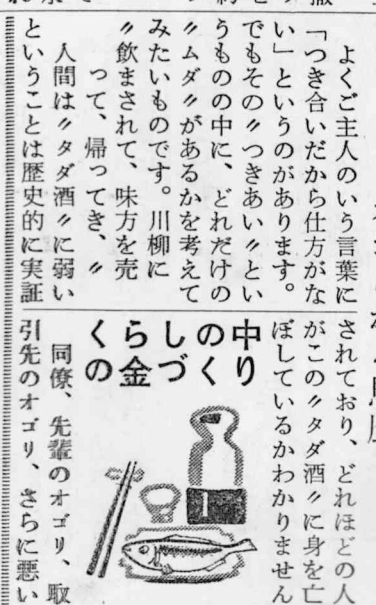 よくご主人のいう言葉に
「つき合いだから仕方がな
い」というのがあります。
でもその〃つきあい〃とい
うものの中に、どれだけの
〃ムダ〃があるかを考えて
みたいものです。川柳に
〃飲まされて、味方を売
って、帰ってき、〃
人間は〃タダ酒〃に弱い
ということは歴史的に実証
されており、どれほどの人
がこの〃タダ酒〃に身を亡
ぼしているかわかりません
中り
のく
しづ
ら金
くの
1
同僚、先輩のオゴリ、取
引先のオゴリ、さらに悪い